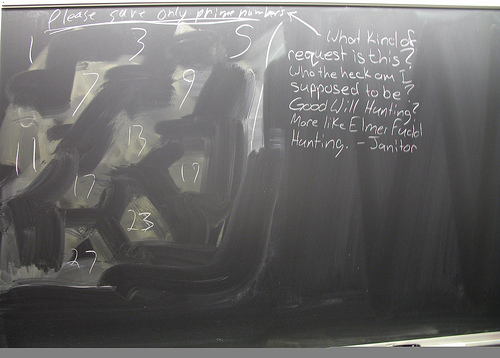 Please save only prime numbers
What kind of
request is this?
Who the heck am I
supposed to be?
Good Will Hunting?
More like Elmer Fudd
Hunting. - Janitor
1 3 5
7 9
11 13
17 19
23
27